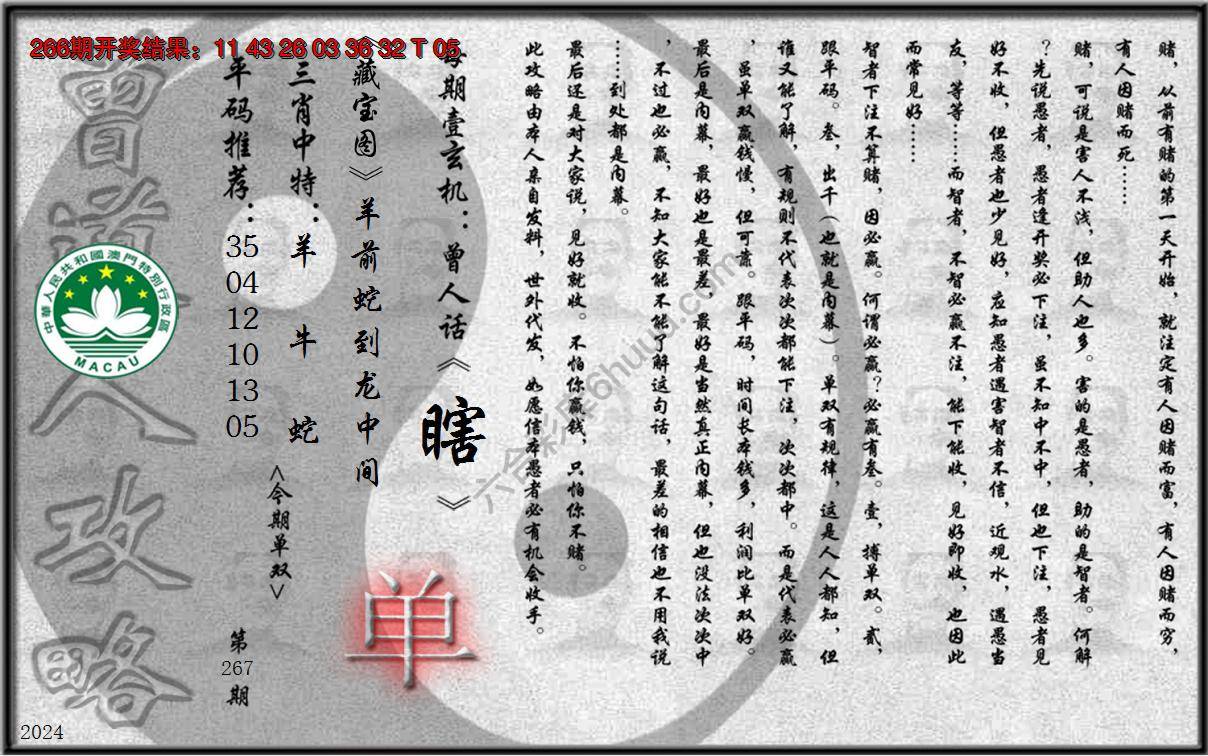 266期开奖结果：11 43 26 03 36 32 T 05
赌，从前有赌的第一天开始，就注定有人因赌而富，有人因赌而穷，
有人因赌而死……
赌，可说是害人不浅，但助人也多。害的是愚者，助的是智者。何解
？先说愚者，愚者逢开奖必下注，虽不知中不中，但也下注，愚者见
好不收，但愚者也少见好，应知愚者遇害智者不信，近观水，遇愚当
友，等等……而智者，不智必赢不注，能下能收，见好即收，也因此
而常见好……
智者下注不算赌，因必赢。何谓必赢？必赢有叁。壹，搏单双。贰，
跟平码。叁，出千（也就是内幕）。单双有规律，这是人人都知，但
谁又能了解，有规则不代表次次都能下注，次次都中。而是代表必赢
，虽单双赢钱慢，但可靠。跟平码，时间长本钱多，利润比单双好。
最后是内幕，最好也是最差，最好是当然真正内幕，但也没法次次中
，不过也必赢，不知大家能不能了解这句话，最差的相信也不用我说
……到处都是内幕。
最后还是对大家说，见好就收。不怕你赢钱，只怕你不赌。
此攻略由本人亲自发料，世外代发，如愿信本愚者必有机会收手。
每期壹玄机：曾人话《瞎》
《藏宝图》羊前蛇到龙中间
单
三肖中特：羊 牛 蛇
<今期单双>
平码推荐：
35
04
12
10
13
05
第
267
期
曾道人攻略
中華人民共和國澳門特別行政區
MACAU
六合彩库6huuu.com
2024